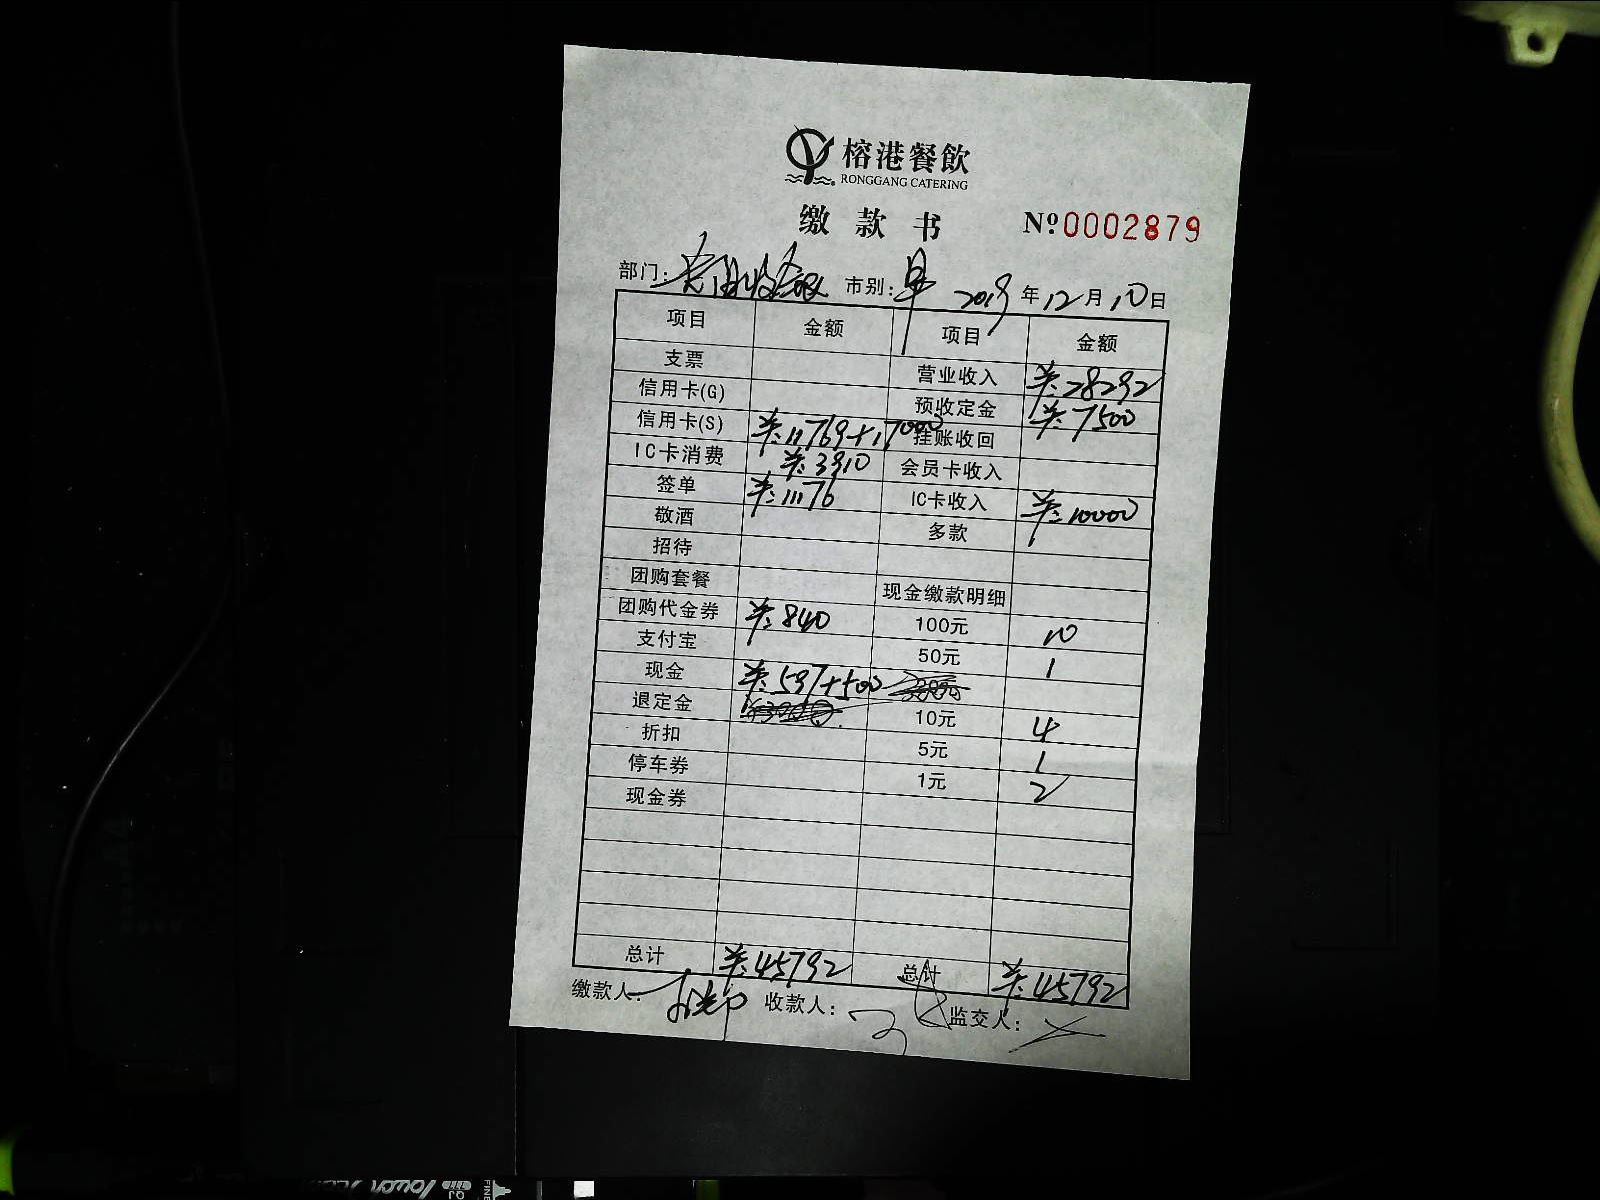 榕港餐飲
RONGGANG CATERING
缴款书 Nº0002879
部门: 市别:早 2019年12月10日
项目 金额 项目 金额
支票 营业收入 ¥:28292
信用卡(G) 预收定金 ¥:7500
信用卡(S) ¥:11769+17000 挂账收回
IC卡消费 ¥:3910 会员卡收入
签单 ¥:11176 IC卡收入 ¥:10000
敬酒 多款
招待
团购套餐 现金缴款明细
团购代金券 ¥:840 100元 10
支付宝 50元 1
现金 ¥:597+500
退定金 10元 4
折扣 5元 1
停车券 1元 2
现金券
总计 ¥:45792 总计 ¥:45792
缴款人: 收款人: 监交人: